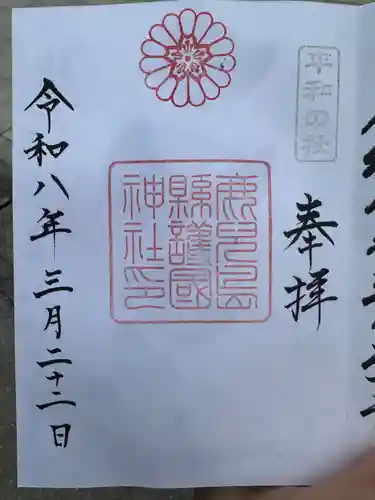 平和の社
奉拝
鹿児島
縣護國
神社印
令和八年三月二十二日